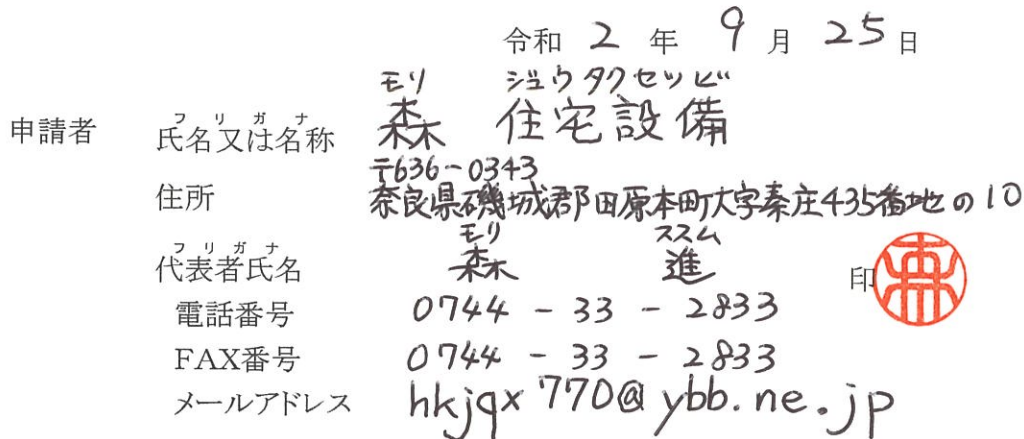 令和 2 年 9 月 25 日
モリ ジュウタクセツビ
申請者 氏名又は名称 フリガナ 森 住宅設備
〒636-0343
住所 奈良県磯城郡田原本町大字秦庄435番地の10
フリガナ モリ ススム
代表者氏名 森 進 印 森
電話番号 0744 - 33 - 2833
FAX番号 0744 - 33 - 2833
メールアドレス hkjqx770@ybb.ne.jp